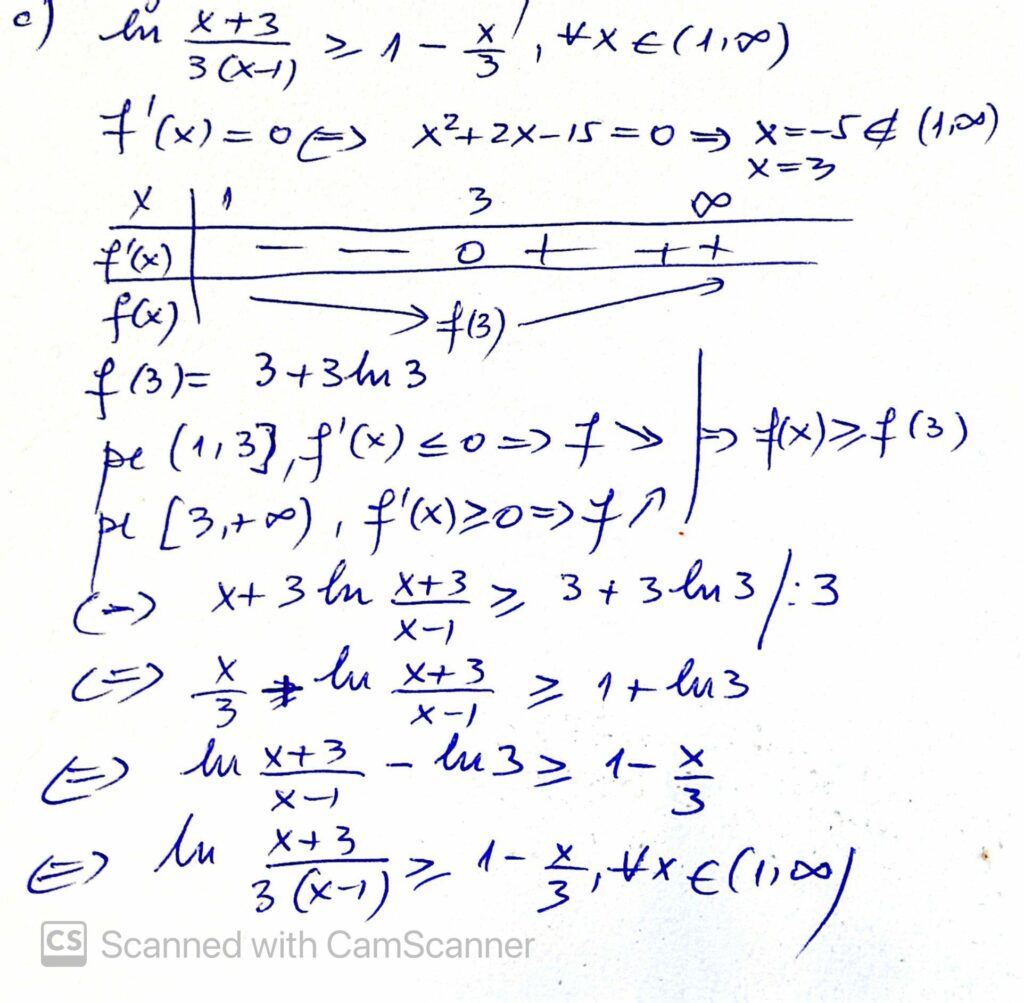 c) ln (x+3)/(3(x-1)) ≥ 1 - x/3, ∀x ∈ (1,∞)
f'(x)=0 <=> x²+2x-15=0 => x=-5 ∉ (1,∞)
x=3
x | 1 3 ∞
f'(x) | - - 0 + + +
f(x) | → f(3) →
f(3)= 3+3ln3
pe (1,3], f'(x) ≤ 0 => f ↘ | => f(x) ≥ f(3)
pe [3,+∞), f'(x) ≥ 0 => f ↗
(=) x+3 ln (x+3)/(x-1) ≥ 3+3ln3 /:3
(=) x/3 + ln (x+3)/(x-1) ≥ 1+ln3
(=) ln (x+3)/(x-1) - ln3 ≥ 1 - x/3
(=) ln (x+3)/(3(x-1)) ≥ 1 - x/3, ∀x ∈ (1,∞)
CS Scanned with CamScanner